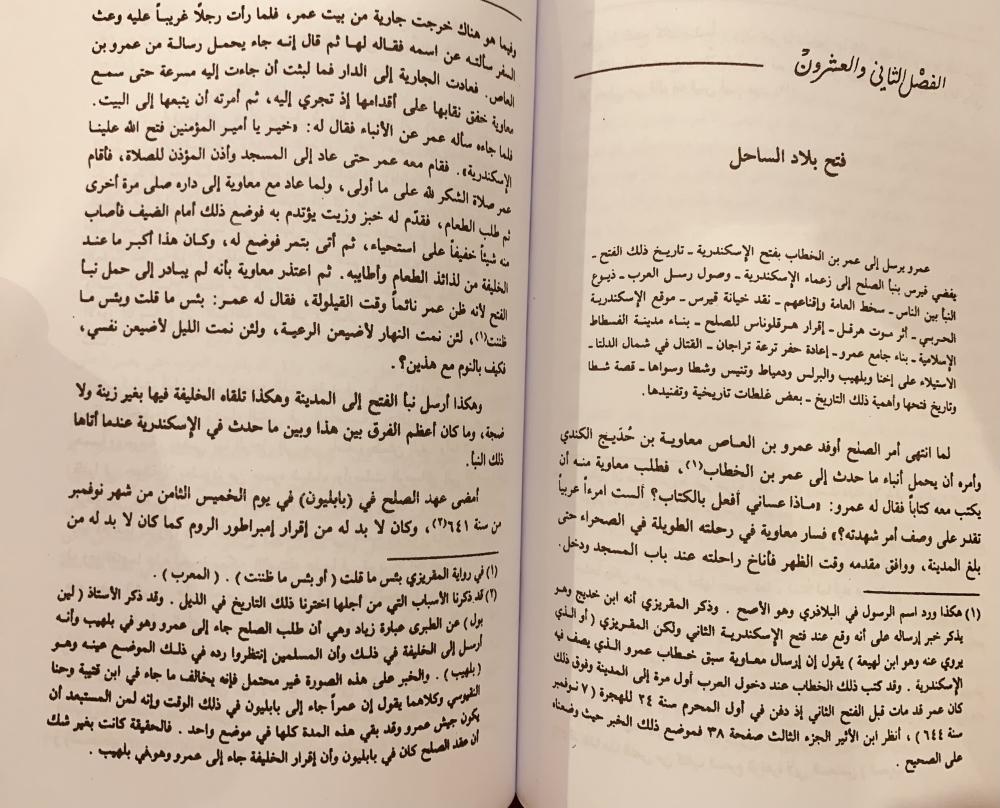 الفصل الثاني والعشرون
فتح بلاد الساحل
عمرو يرسل إلى عمر بن الخطاب بفتح الإسكندرية ـ تاريخ ذلك الفتح ـ
يفضي قيرس بنبأ الصلح إلى زعماء الإسكندرية ـ وصول رسل العرب ـ ذيوع
النبأ بين الناس ـ سخط العامة وإقناعهم ـ نقد خيانة قيرس ـ موقع الإسكندرية
الحربي ـ أثر موت هرقل ـ إقرار هرقلوناس للصلح ـ بناء مدينة الفسطاط
الإسلامية ـ بناء جامع عمرو ـ إعادة حفر ترعة تراجان ـ القتال في شمال الدلتا ـ
الاستيلاء على إخنا وبلهيب والبرلس ودمياط وتنيس وشطا وسواها ـ قصة شطا
وتاريخ فتحها وأهمية ذلك التاريخ ـ بعض غلطات تاريخية وتفنيدها.
لما انتهى أمر الصلح أوفد عمرو بن العاص معاوية بن حُدَيج الكندي
وأمره أن يحمل أنباء ما حدث إلى عمر بن الخطاب(١)، فطلب معاوية منه أن
يكتب معه كتاباً فقال له عمرو: «ماذا عساني أفعل بالكتاب؟ ألست امرءاً عربياً
تقدر على وصف أمر شهدته؟» فسار معاوية في رحلته الطويلة في الصحراء حتى
بلغ المدينة، ووافق مقدمه وقت الظهر فأناخ راحلته عند باب المسجد ودخل.
(١) هكذا ورد اسم الرسول في البلاذري وهو الأصح . وذكر المقريزي أنه ابن خديج وهو
يذكر خبر إرساله على أنه وقع عند فتح الإسكندرية الثاني ولكن المقريزي ( أو الذي
يروي عنه وهو ابن لهيعة ) يقول إن إرسال معاوية سبق خطاب عمرو الذي يصف فيه
الإسكندرية . وقد كتب ذلك الخطاب عند دخول العرب أول مرة إلى المدينة وفوق ذلك
كان عمر قد مات قبل الفتح الثاني إذ دفن في أول المحرم سنة ٢٤ للهجرة ( ٧ نوفمبر
سنة ٦٤٤ ) ، أنظر ابن الأثير الجزء الثالث صفحة ٣٨ فموضع ذلك الخبر حيث وضعناه
على الصحيح .
وفيما هو هناك خرجت جارية من بيت عمر، فلما رأت رجلاً غريباً عليه وعث
السفر سألته عن اسمه فقاله لها ثم قال إنه جاء يحمل رسالة من عمرو بن
العاص. فعادت الجارية إلى الدار فما لبثت أن جاءت إليه مسرعة حتى سمع
معاوية خفق نقابها على أقدامها إذ تجري إليه، ثم أمرته أن يتبعها إلى البيت.
فلما جاءه سأله عمر عن الأنباء فقال له: «خير يا أمير المؤمنين فتح الله علينا
الإسكندرية». فقام معه عمر حتى عاد إلى المسجد وأذن المؤذن للصلاة، فأقام
عمر صلاة الشكر لله على ما أولى، ولما عاد مع معاوية إلى داره صلى مرة أخرى
ثم طلب الطعام، فقدّم له خبز وزيت يؤتدم به فوضع ذلك أمام الضيف فأصاب
منه شيئاً خفيفاً على استحياء، ثم أتى بتمر فوضع له، وكان هذا أكبر ما عند
الخليفة من لذائذ الطعام وأطايبه. ثم اعتذر معاوية بأنه لم يبادر إلى حمل نبأ
الفتح لأنه ظن عمر نائماً وقت القيلولة، فقال له عمر: بئس ما قلت وبئس ما
ظننت(١)، لئن نمت النهار لأضيعن الرعية، ولئن نمت الليل لأضيعن نفسي،
فكيف بالنوم مع هذين؟.
وهكذا أرسل نبأ الفتح إلى المدينة وهكذا تلقاه الخليفة فيها بغير زينة ولا
ضجة، وما كان أعظم الفرق بين هذا وبين ما حدث في الإسكندرية عندما أتاها
ذلك النبأ.
أمضى عهد الصلح في (بابليون) في يوم الخميس الثامن من شهر نوفمبر
من سنة ٦٤١(٢)، وكان لا بد له من إقرار إمبراطور الروم كما كان لا بد له من
(١) في رواية المقريزي بئس ما قلت ( أو بئس ما ظننت ) . ( المعرب ) .
(٢) قد ذكرنا الأسباب التي من أجلها اخترنا ذلك التاريخ في الذيل . وقد ذكر الأستاذ ( لين
بول ) عن الطبري عبارة زياد وهي أن طلب الصلح جاء إلى عمرو وهو في بلهيب وأنه
أرسل إلى الخليفة في ذلك وأن المسلمين إنتظروا رده في ذلك الموضع عينه وهو
( بلهيب ) . والخبر على هذه الصورة غير محتمل فإنه يخالف ما جاء في ابن قتيبة وحنا
النقيوسي وكلاهما يقول إن عمراً جاء إلى بابليون في ذلك الوقت وإنه لمن المستبعد أن
يكون جيش عمرو وقد بقي هذه المدة كلها في موضع واحد . فالحقيقة كانت بغير شك
أن عقد الصلح كان في بابليون وأن إقرار الخليفة جاء إلى عمرو وهو في بلهيب .